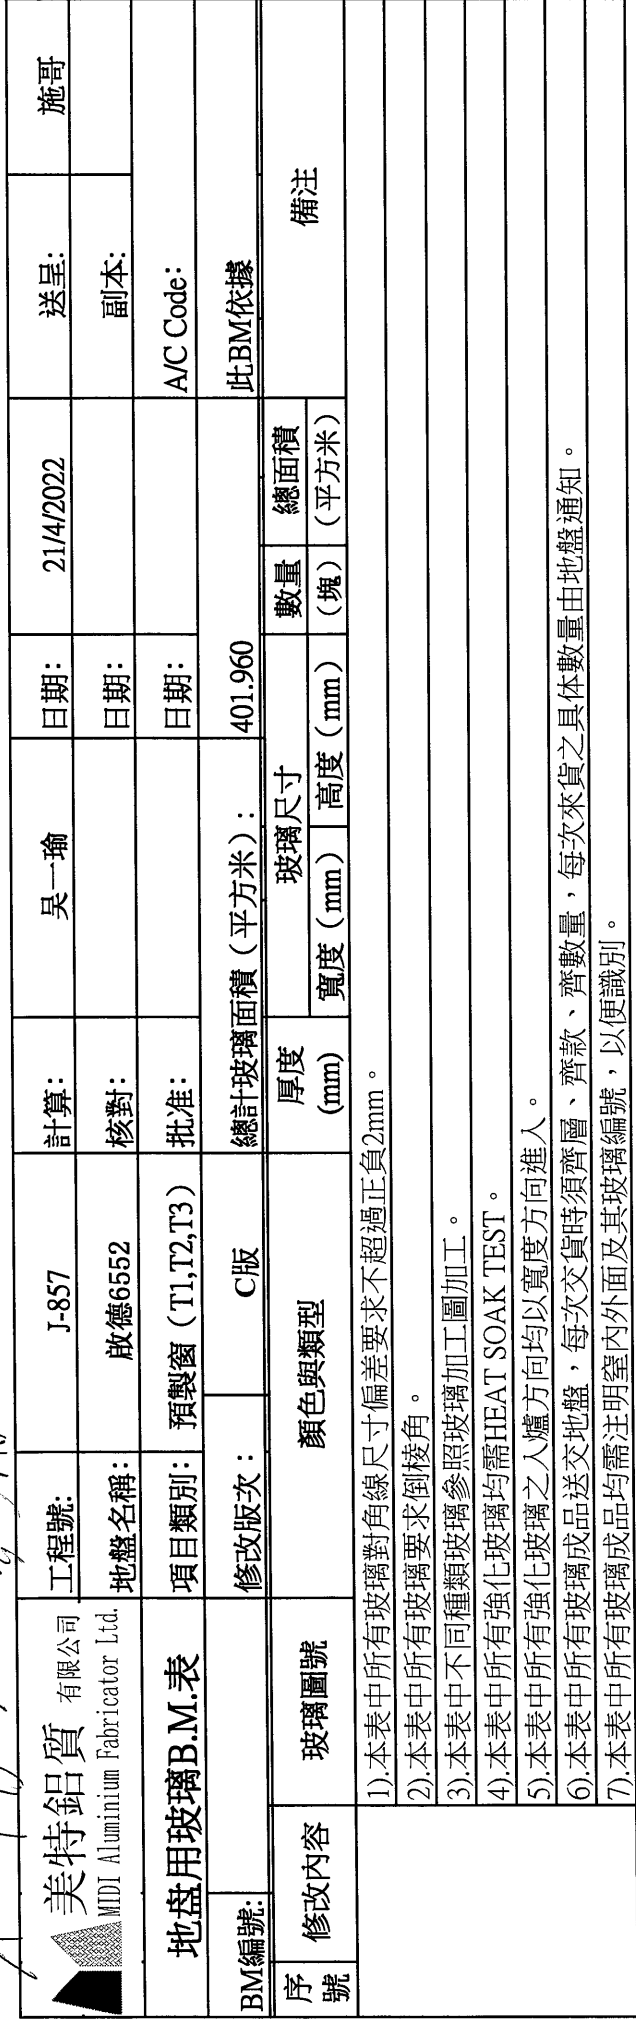 美特鋁質 有限公司
MIDI Aluminium Fabricator Ltd.
工程號: J-857 計算: 吴一瑜 日期: 21/4/2022 送呈: 施哥
地盤名稱: 啟德6552 核對: 日期: 副本:
地盘用玻璃B.M.表
項目類別: 預製窗（T1,T2,T3） 批准: 日期: A/C Code:
BM編號: 修改版次： C版 總計玻璃面積（平方米）: 401.960 此BM依據
序號 修改内容 玻璃圖號 顏色與類型 厚度(mm) 玻璃尺寸 數量（塊） 總面積（平方米） 備注
寬度（mm） 高度（mm）
1).本表中所有玻璃對角線尺寸偏差要求不超過正負2mm。
2).本表中所有玻璃要求倒棱角。
3).本表中不同種類玻璃參照玻璃加工圖加工。
4).本表中所有強化玻璃均需HEAT SOAK TEST。
5).本表中所有強化玻璃之入爐方向均以寬度方向進入。
6).本表中所有玻璃成品送交地盤，每次交貨時須齊層、齊款、齊數量，每次來貨之具体數量由地盤通知。
7).本表中所有玻璃成品均需注明室内外面及其玻璃編號，以便識別。